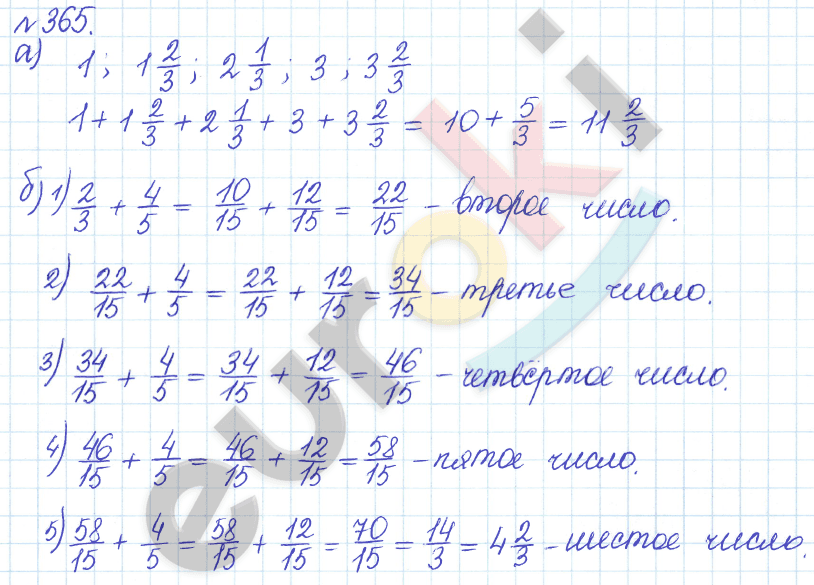 №365.
а) 1; 1 2/3; 2 1/3; 3; 3 2/3
1 + 1 2/3 + 2 1/3 + 3 + 3 2/3 = 10 + 5/3 = 11 2/3
б) 1) 2/3 + 4/5 = 10/15 + 12/15 = 22/15 - второе число.
2) 22/15 + 4/5 = 22/15 + 12/15 = 34/15 - третье число.
3) 34/15 + 4/5 = 34/15 + 12/15 = 46/15 - четвёртое число.
4) 46/15 + 4/5 = 46/15 + 12/15 = 58/15 - пятое число.
5) 58/15 + 4/5 = 58/15 + 12/15 = 70/15 = 14/3 = 4 2/3 - шестое число.
euroki